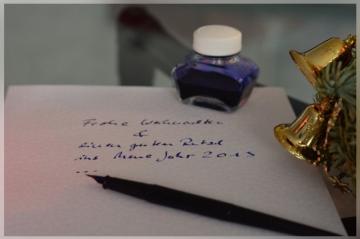 Frohe Weihnachten
&
einen guten Rutsch
ins Neue Jahr 2013
...